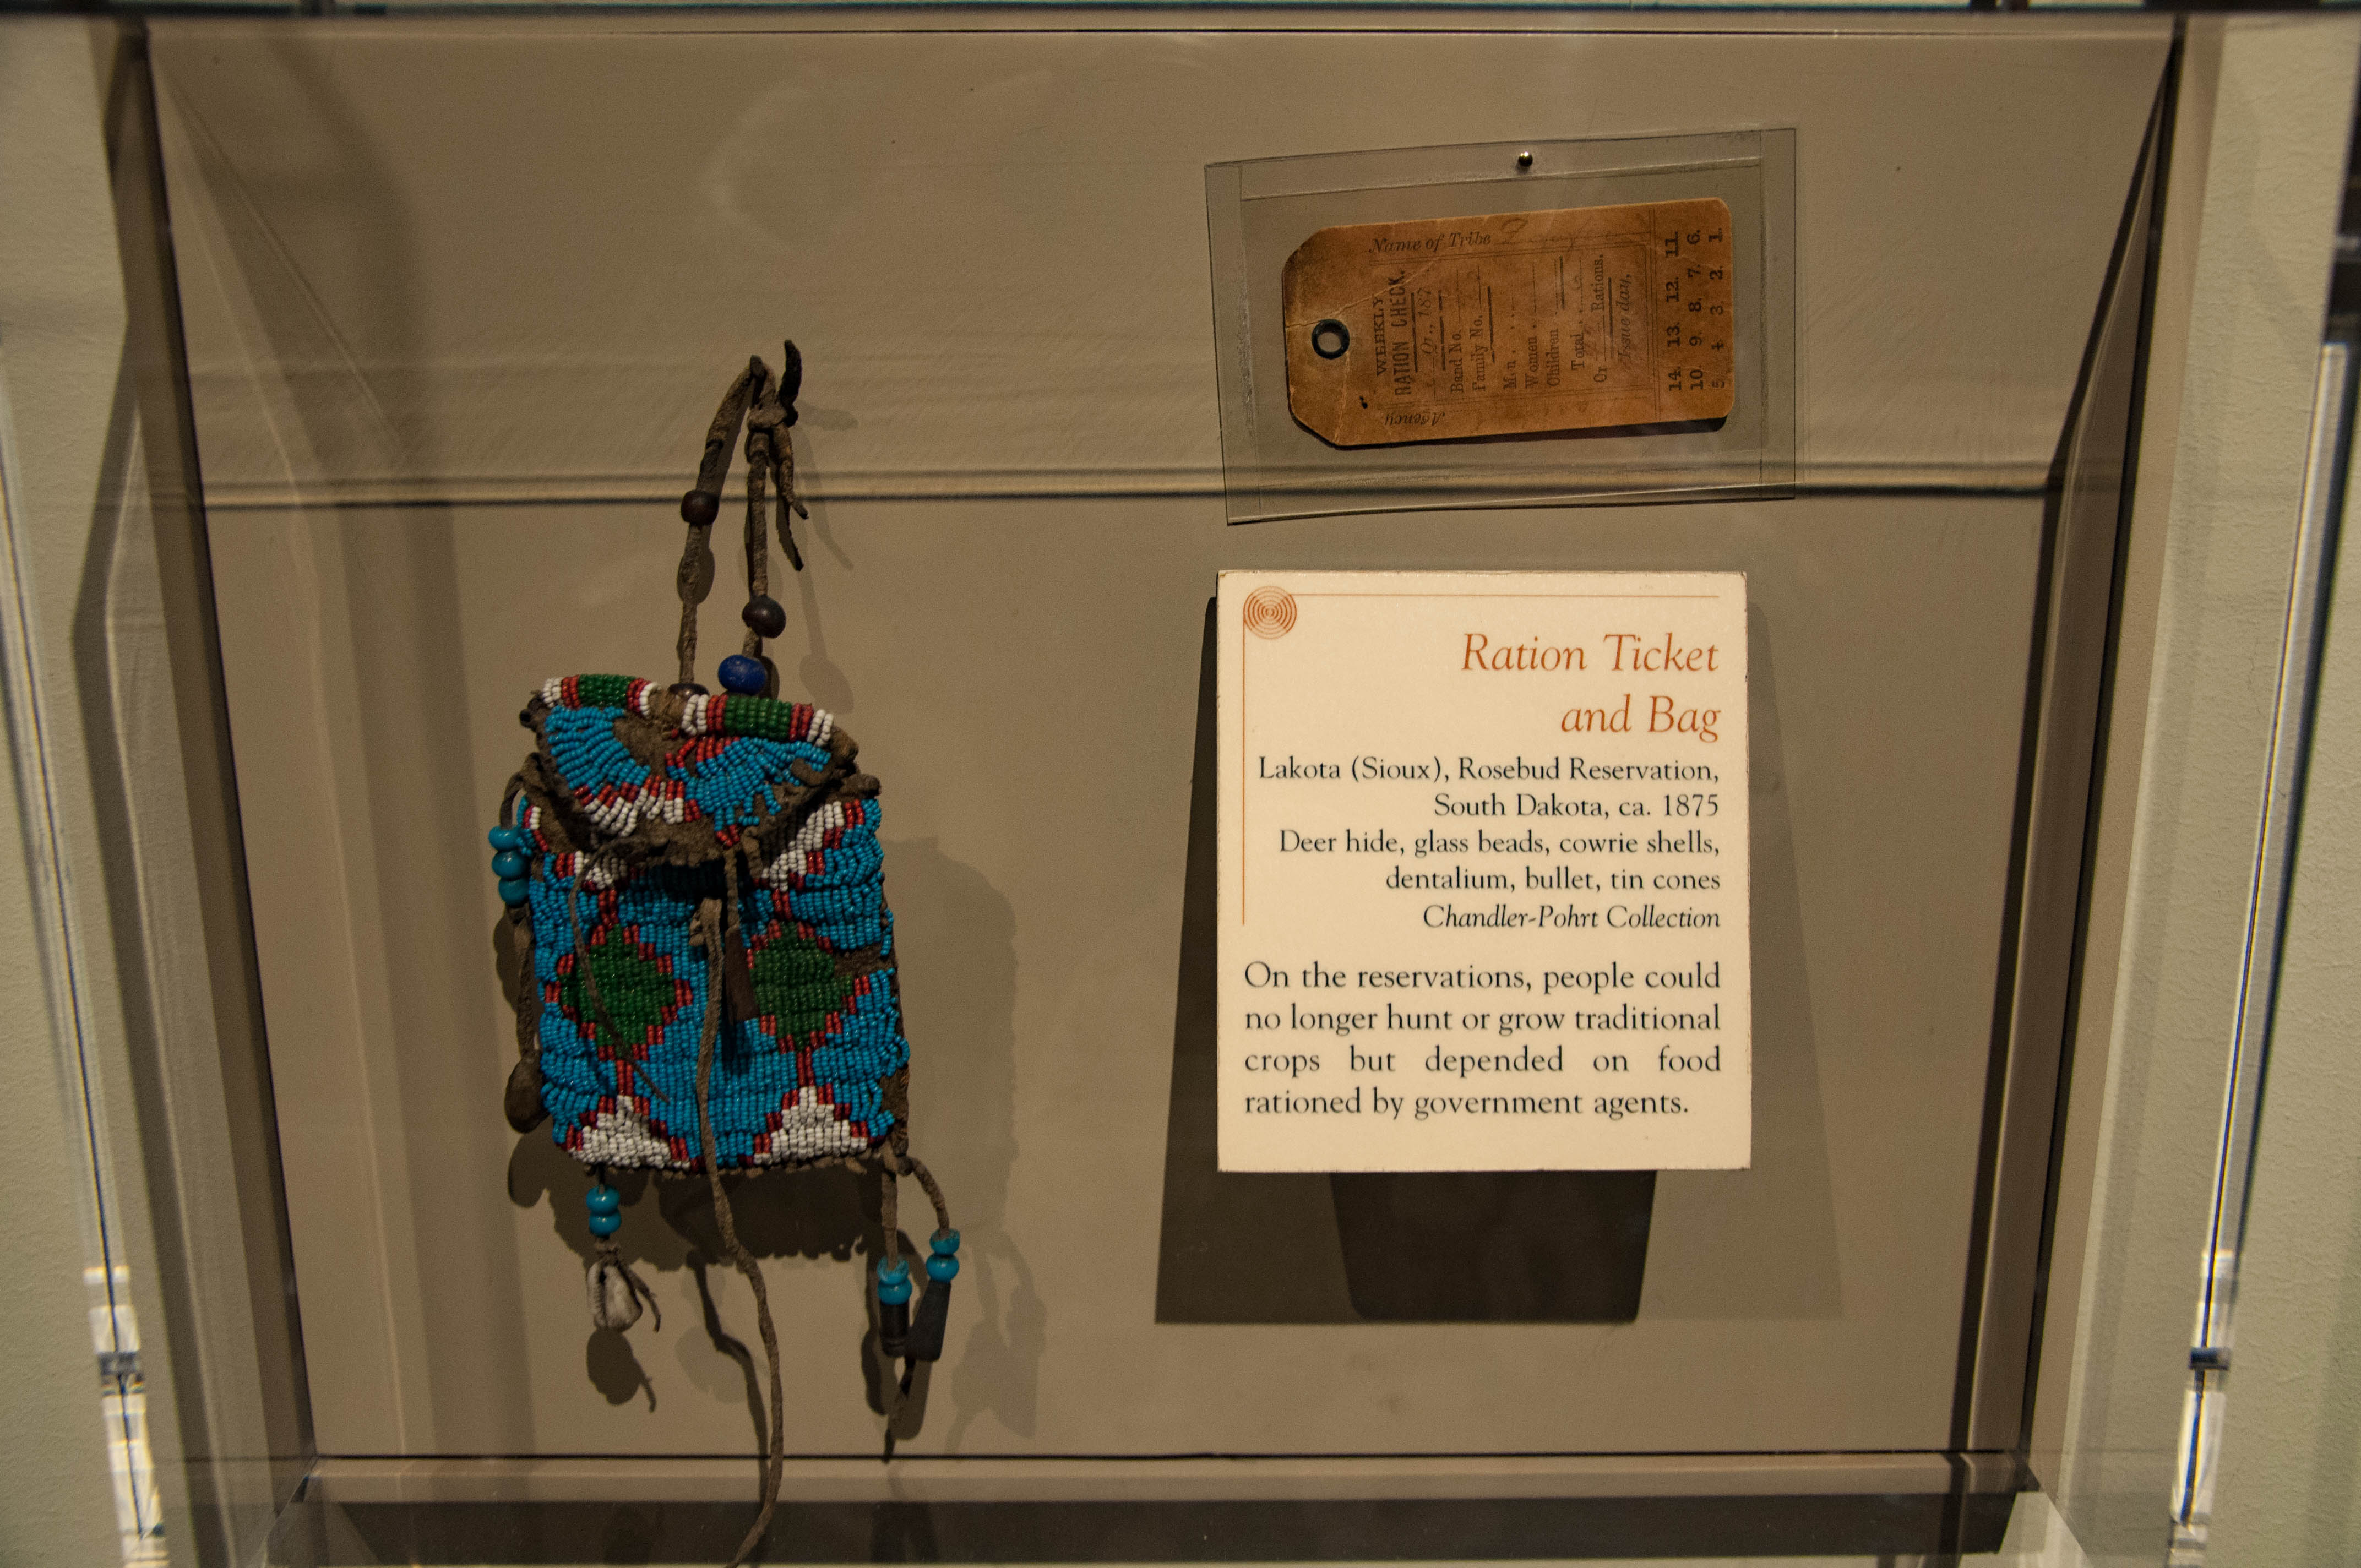 Name of Tribe
WEEKLY
RATION CHECK.
Qr., 187
Band No.
Family No.
Men
Women
Children
Total
Or Rations.
Issue day,
14. 13. 12. 11.
10. 9. 8. 7. 6.
5. 4. 3. 2. 1.
Agency
Ration Ticket
and Bag
Lakota (Sioux), Rosebud Reservation,
South Dakota, ca. 1875
Deer hide, glass beads, cowrie shells,
dentalium, bullet, tin cones
Chandler-Pohrt Collection
On the reservations, people could
no longer hunt or grow traditional
crops but depended on food
rationed by government agents.